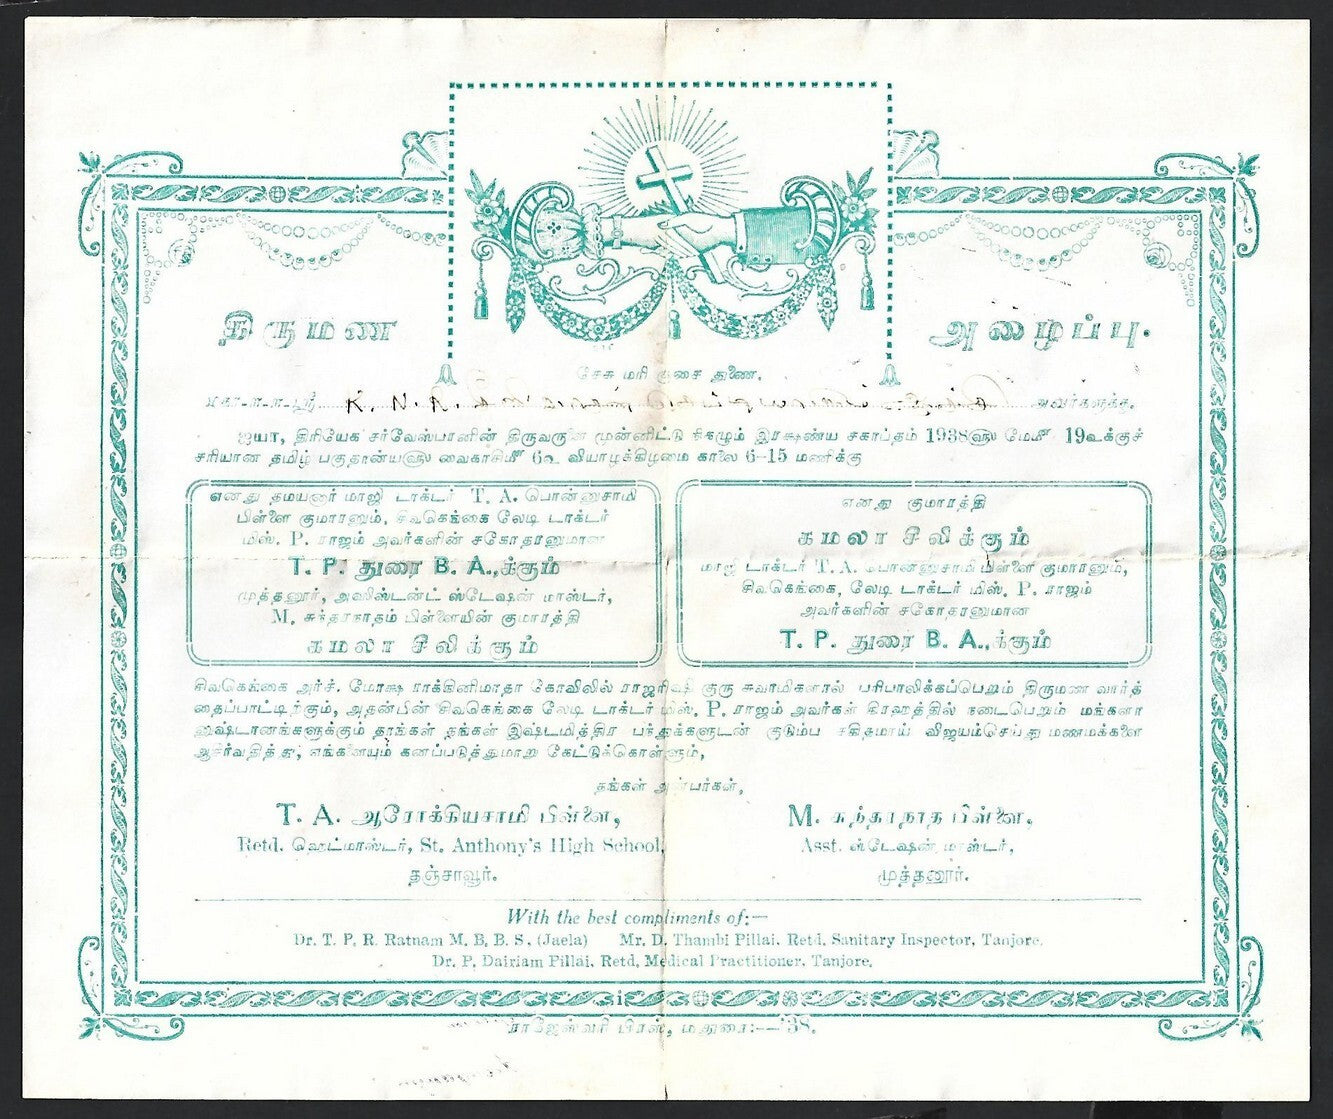 திருமண அழைப்பு.
சேசு மரி சூசை துணை.
மகா-ா-ா-ஸ்ரீ K. N. R. R. அவர்களுக்கு.
ஐயா, திரியேக சர்வேஸ்பானின் திருவருளை முன்னிட்டு நிகழும் இரக்ஷண்ய சகாப்தம் 1938ஹு மேமீ 19உக்குச்
சரியான தமிழ் பகுதான்யஹு வைகாசிமீ 6உ வியாழக்கிழமை காலை 6-15 மணிக்கு
எனது தமயனார் மாஜி டாக்டர் T. A. பொன்னுசாமி
பிள்ளை குமாரனும், சிவகெங்கை லேடி டாக்டர்
மிஸ். P. ராஜம் அவர்களின் சகோதரனுமான
T. P. துரை B. A.,க்கும்
முத்தனூர், அஸிஸ்டன்ட் ஸ்டேஷன் மாஸ்டர்,
M. சுந்தரநாதம் பிள்ளையின் குமாரத்தி
கமலா சீலிக்கும்
எனது குமாரத்தி
கமலா சீலிக்கும்
மாஜி டாக்டர் T. A. பொன்னுசாமி பிள்ளை குமாரனும்,
சிவகெங்கை, லேடி டாக்டர் மிஸ். P. ராஜம்
அவர்களின் சகோதரனுமான
T. P. துரை B. A.,க்கும்
சிவகெங்கை அர்ச். மோக்ஷ ராக்கினிமாதா கோவிலில் ராஜரிஷி குரு சுவாமிகளால் பரிபாலிக்கப்பெறும் திருமண வார்த்
தைப்பாட்டிற்கும், அதன்பின் சிவகெங்கை லேடி டாக்டர் மிஸ். P. ராஜம் அவர்கள் கிரஹத்தில் நடைபெறும் மங்களா
னுஷ்டானங்களுக்கும் தாங்கள் தங்கள் இஷ்டமித்திர பந்துக்களுடன் குடும்ப சகிதமாய் விஜயம்செய்து மணமக்களை
ஆசீர்வதித்து, எங்களையும் கனப்படுத்துமாறு கேட்டுக்கொள்ளும்,
தங்கள் அன்பர்கள்,
T. A. ஆரோக்கியசாமி பிள்ளை,
Retd. ஹெட்மாஸ்டர், St. Anthony's High School,
தஞ்சாவூர்.
M. சுந்தரநாத பிள்ளை,
Asst. ஸ்டேஷன் மாஸ்டர்,
முத்தனூர்.
With the best compliments of:—
Dr. T. P. R. Ratnam M. B, B. S, (Jaela) Mr. D. Thambi Pillai. Retd. Sanitary Inspector, Tanjore.
Dr. P. Dairiam Pillai. Retd. Medical Practitioner. Tanjore.
ராஜேஸ்வரி பிரஸ், மதுரை:—'38.